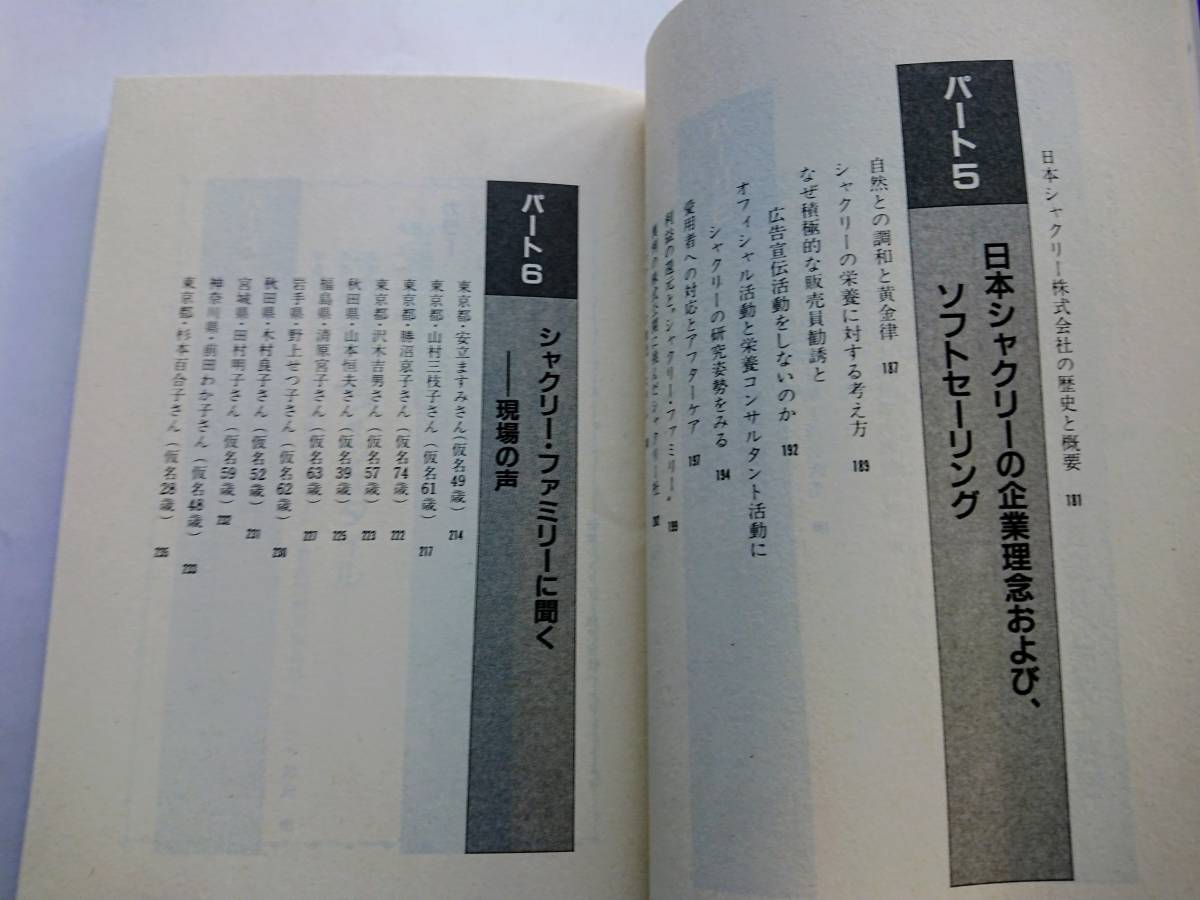 パート5
日本シャクリーの企業理念および、
ソフトセーリング
日本シャクリー株式会社の歴史と概要 181
自然との調和と黄金律 187
シャクリーの栄養に対する考え方 189
なぜ積極的な販売員勧誘と
広告宣伝活動をしないのか 192
オフィシャル活動と栄養コンサルタント活動に
シャクリーの研究姿勢をみる 194
愛用者への対応とアフターケア 197
利益の還元と“シャクリー・ファミリー” 199
パート6
シャクリー・ファミリーに聞く
——現場の声
東京都・安立ますみさん(仮名49歳) 214
東京都・山村三枝子さん(仮名61歳) 217
東京都・勝沼京子さん(仮名74歳) 222
東京都・沢木吉男さん(仮名57歳) 223
秋田県・山本恒夫さん(仮名39歳) 225
福島県・清原宮子さん(仮名63歳) 227
岩手県・野上せつ子さん(仮名62歳) 230
秋田県・木村良子さん(仮名52歳) 231
宮城県・田村明子さん(仮名59歳) 232
神奈川県・前田わか子さん(仮名48歳) 233
東京都・杉本百合子さん(仮名28歳) 235